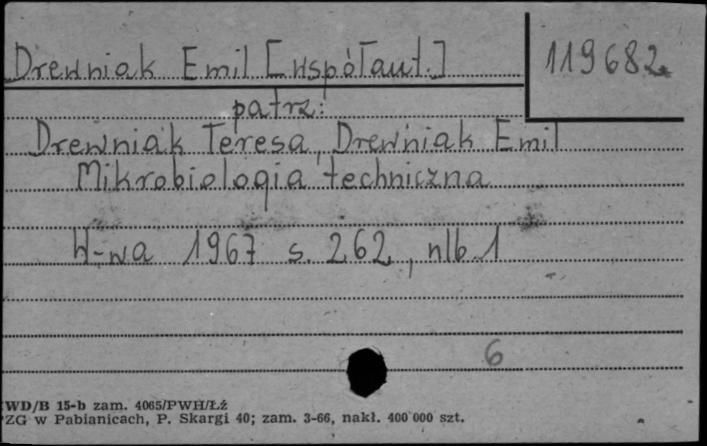 Drewniak Emil [współaut.]
119682
patrz:
Drewniak Teresa, Drewniak Emil
Mikrobiologia techniczna
W-wa 1967 s. 262, nlb. 1
6
WD/B 15-b zam. 4065/PWH/Łź
ZG w Pabianicach, P. Skargi 40; zam. 3-66, nakł. 400 000 szt.